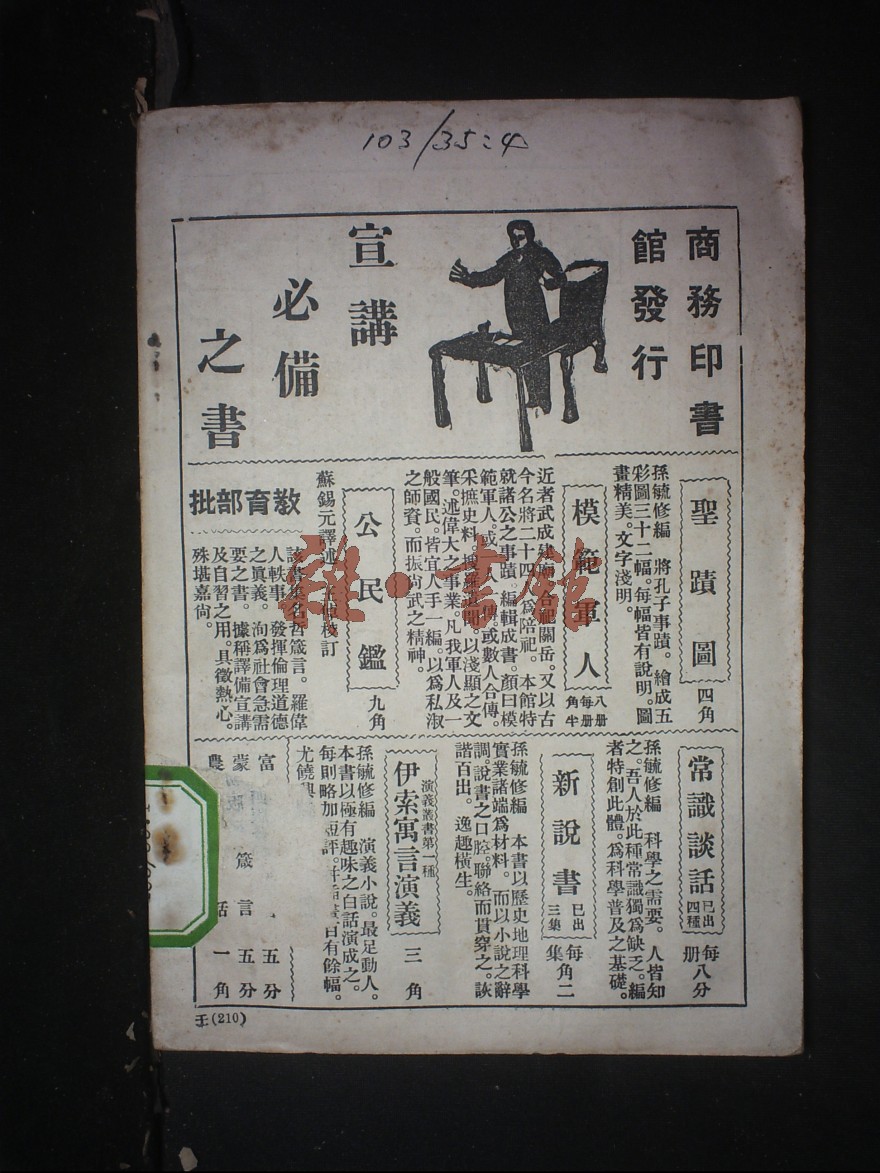 103/35:4
商務印書
館發行
宣講
必備
之書
聖蹟圖
四角
孫毓修編　將孔子事蹟。繪成五
彩圖三十二幅。每幅皆有說明。圖
畫精美。文字淺明。
模範軍人
八册
每册
角半
近者武成建廟。合祀關岳。又以古
今名將二十四人爲陪祀。本館特
就諸公之事蹟。編輯成書。顏曰模
範軍人。或一人一傳。或數人合傳。
采摭史料。搜羅遺聞。以淺顯之文
筆。述偉大之事業。凡我軍人及一
般國民。皆宜人手一編。以爲私淑
之師資。而振尚武之精神。
公民鑑
九角
蘇錫元譯述　王倬校訂
教育部批
該書集名哲箴言。羅偉
人軼事。發揮倫理道德
之眞義。洵爲社會急需
要之書。據稱譯備宣講
及自習之用。具徵熱心。
殊堪嘉尙。
常識談話
已出
四種
每册八分
孫毓修編　科學之需要。人皆知
之。吾人於此種常識獨爲缺乏。編
者特創此體。爲科學普及之基礎。
新說書
已出
三集
每集角二
孫毓修編　本書以歷史地理科學
實業諸端爲材料。而以小說之辭
調。說書之口腔。聯絡而貫穿之。詼
諧百出。逸趣橫生。
演義叢書第一種
伊索寓言演義
三角
孫毓修編　演義小說。最足動人。
本書以極有趣味之白話演成之。
每則略加短評。百有餘幅。
尤饒興
富　五分
蒙　箴言　五分
農　話　一角
(210)王
雜·書館